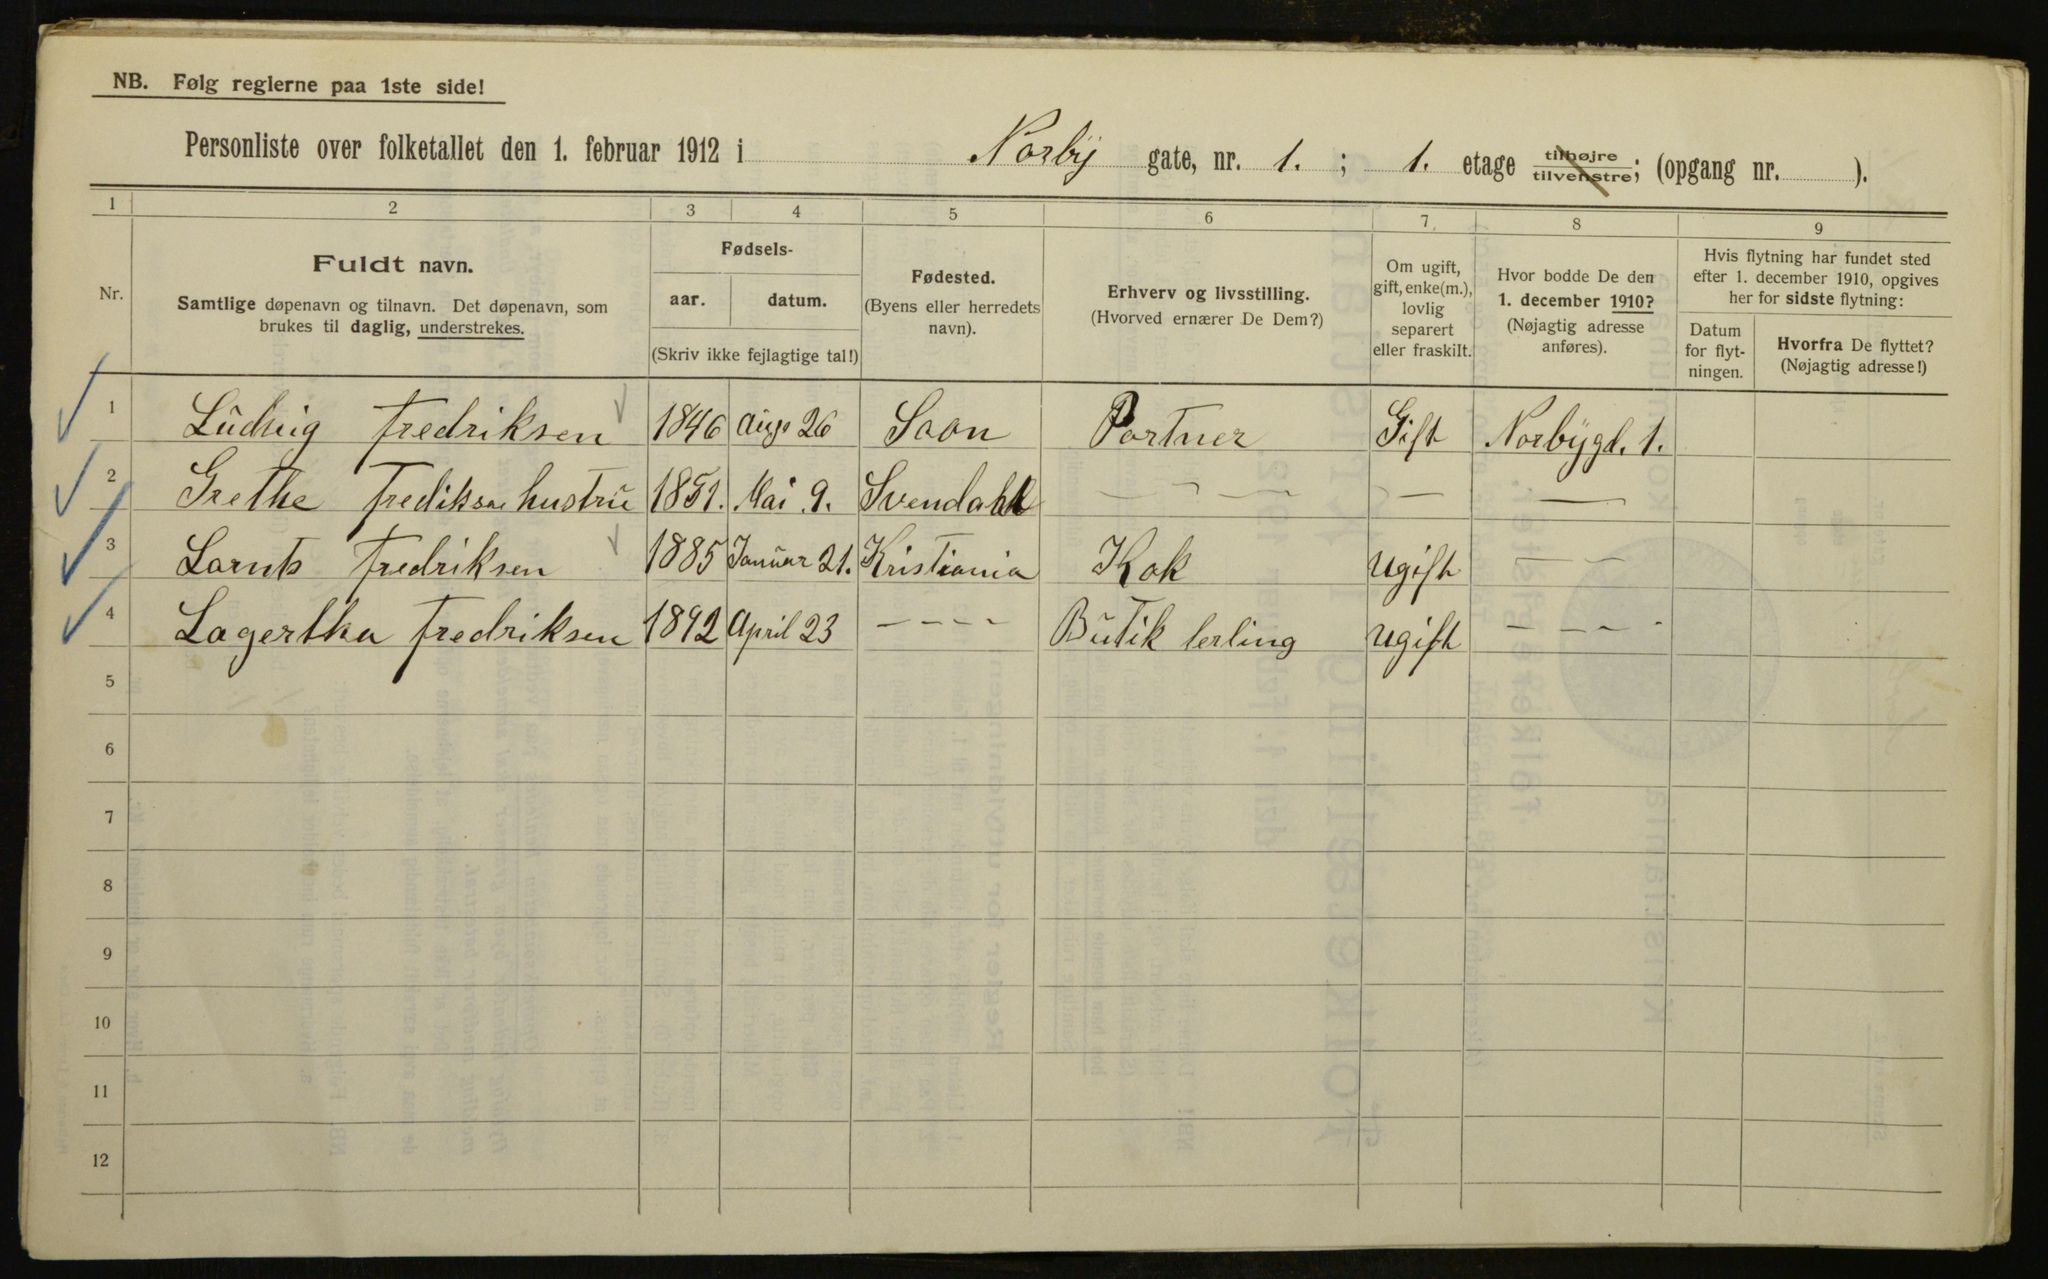 NB. Følg reglerne paa 1ste side!
Personliste over folketallet den 1. februar 1912 i Norby gate, nr. 1. ; 1. etage tilhøjre tilvenstre; (opgang nr. ).
1 2 3 4 5 6 7 8 9
Nr.
Fuldt navn.
Samtlige døpenavn og tilnavn. Det døpenavn, som
brukes til daglig, understrekes.
Fødsels-
aar. datum.
(Skriv ikke fejlagtige tal!)
Fødested.
(Byens eller herredets
navn).
Erhverv og livsstilling.
(Hvorved ernærer De Dem?)
Om ugift,
gift, enke(m.),
lovlig
separert
eller fraskilt.
Hvor bodde De den
1. december 1910?
(Nøjagtig adresse
anføres).
Hvis flytning har fundet sted
efter 1. december 1910, opgives
her for sidste flytning:
Datum
for flyt-
ningen.
Hvorfra De flyttet?
(Nøjagtig adresse!)
1 Ludvig Fredriksen 1846 Aug 26 Soon Portner Gift Norbygd. 1.
2 Grethe Frediksen hustru 1851. Mai 9. Svendahl — — — — —
3 Lornts Fredriksen 1885 Januar 21. Kristiania Kok Ugift — —
4 Lagertha Fredriksen 1892 April 23 - - - - Butik lerling Ugift - - - -
5
6
7
8
9
10
11
12